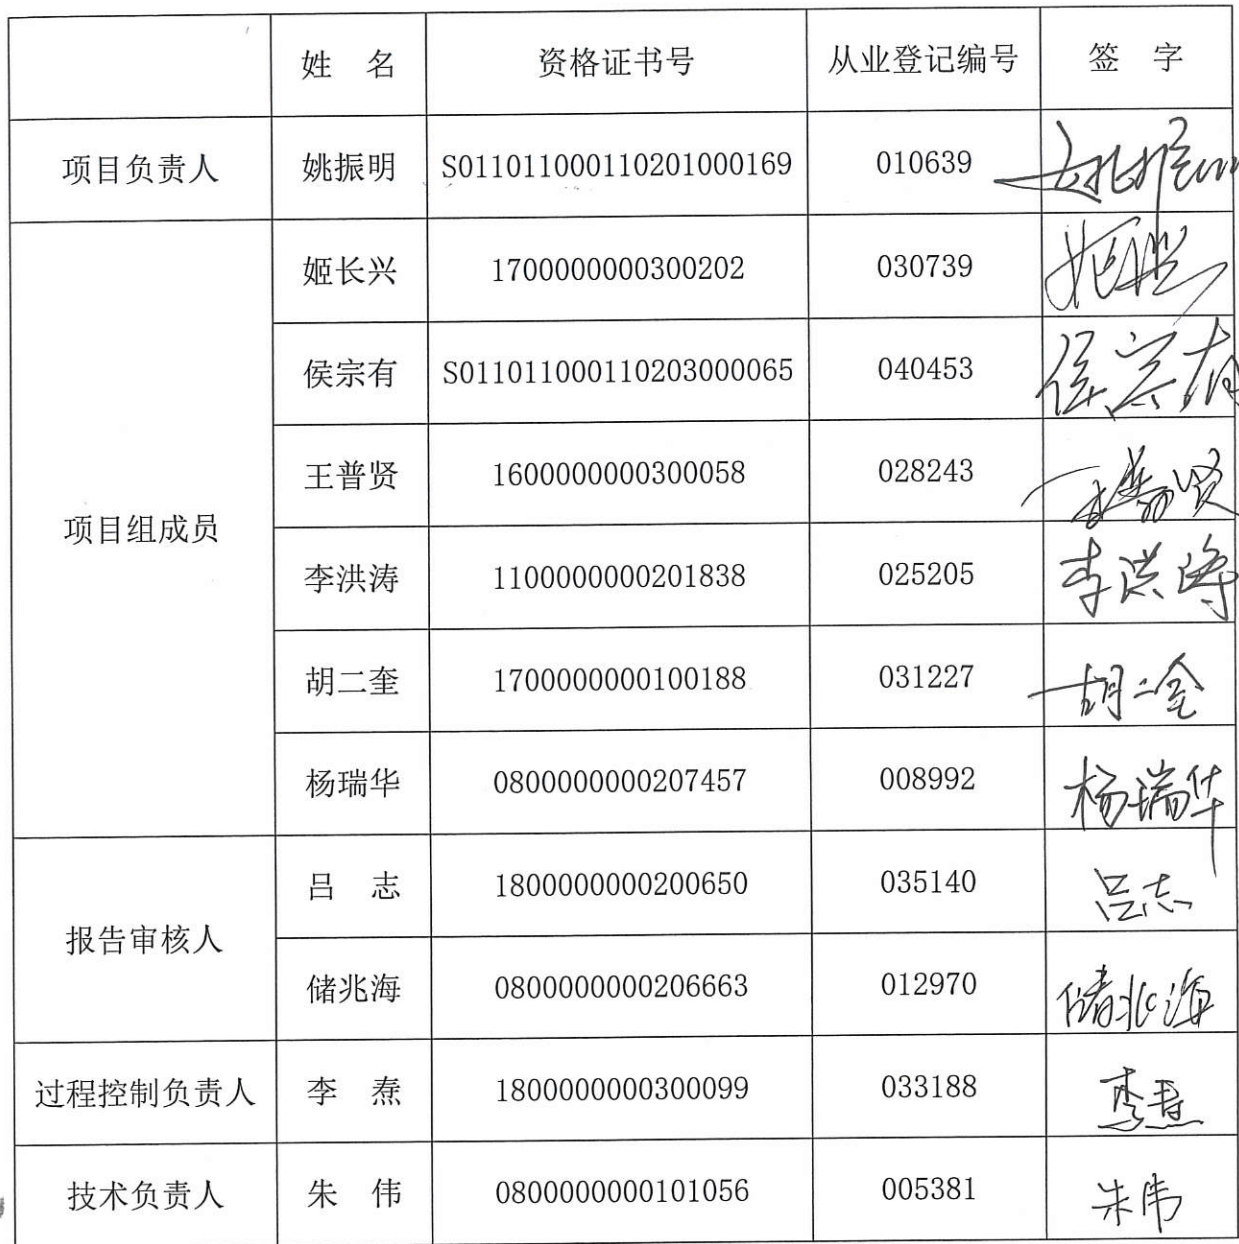 姓 名 资格证书号 从业登记编号 签 字
项目负责人 姚振明 S011011000110201000169 010639 姚振明
项目组成员
姬长兴 1700000000300202 030739
侯宗有 S011011000110203000065 040453 侯宗有
王普贤 1600000000300058 028243 王普贤
李洪涛 1100000000201838 025205 李洪涛
胡二奎 1700000000100188 031227 胡二奎
杨瑞华 0800000000207457 008992 杨瑞华
报告审核人
吕 志 1800000000200650 035140 吕志
储兆海 0800000000206663 012970 储兆海
过程控制负责人 李 焘 1800000000300099 033188
技术负责人 朱 伟 0800000000101056 005381 朱伟